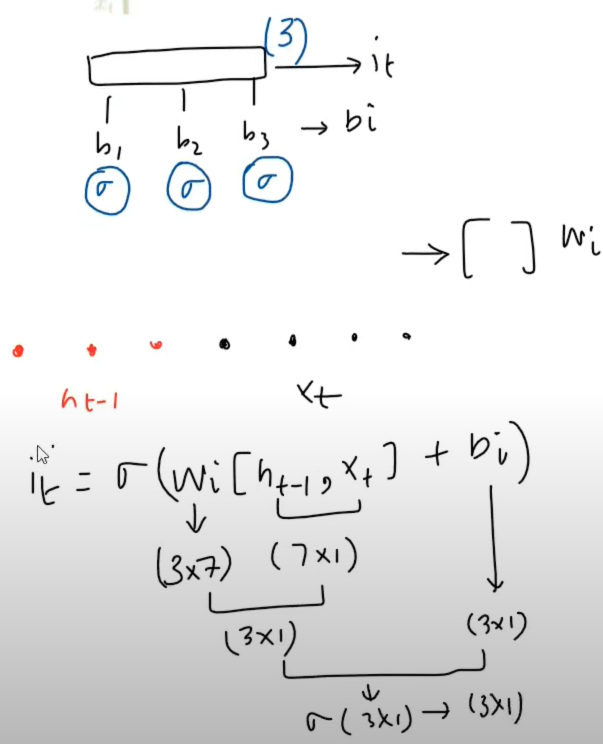 (3)
→ it
b1 b2 b3 → bi
σ σ σ
→ [ ] Wi
ht-1 xt
it = σ(Wi[ht-1, xt] + bi)
(3x7) (7x1)
(3x1) (3x1)
σ(3x1) → (3x1)